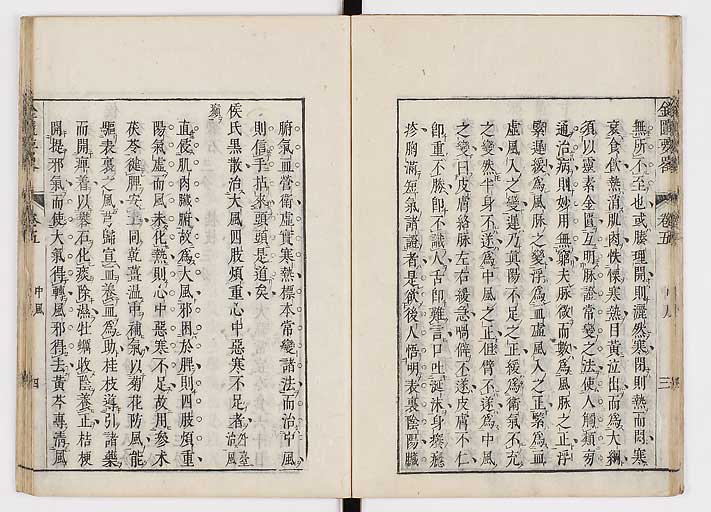 金匱要略
卷五
三
無所不至也或腠理開則灑然寒閉則熱而悶寒
衰食飲熱消肌肉怢慄寒熱目黃泣出而為大綱
須以靈素金匱互明脉證常變之法使人觸類旁
通治病則妙用無窮夫脉微而數為風脉之正浮
緊遲緩為風脉之變浮為血虛風入之正緊為血
虛風入之變遲乃真陽不足之正緩為衛氣不充
之變然半身不遂為中風之正但臂不遂為中風
之變曰皮膚絡脉左右緩急喎僻不遂皮膚不仁
即重不勝即不識人舌即難言口吐涎沫身癢癮
疹胸滿短氣諸證者是欲後人悟明表裏陰陽臟
腑氣血營衛虛實寒熱標本常變諸法而治中風
則信手拈來頭頭是道矣
侯氏黑散治大風四肢煩重心中惡寒不足者外臺治風癲
直侵肌肉臟腑故為大風邪困於脾則四肢煩重
陽氣虛而風未化熱則心中惡寒不足故用參朮
茯苓健脾安土同乾薑溫中補氣以菊花防風能
驅表裏之風芎歸宣血養血為助桂枝導引諸藥
而開痺著以礬石化痰除濕牡蠣收陰養正桔梗
開提邪氣而使大氣得轉風邪得去黃芩專清風
卷五
中風
四